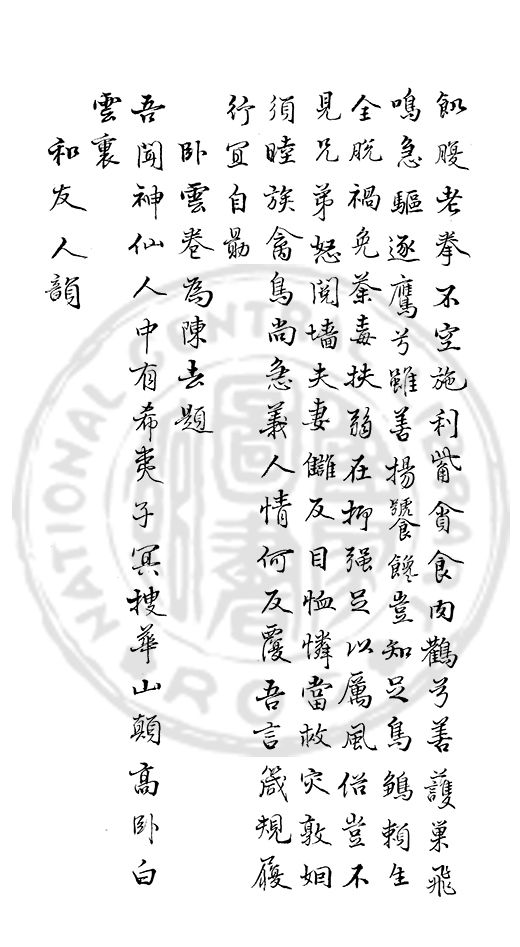 飢腹老拳不空施利觜貪食肉鸛兮善護巢飛
鳴急驅逐鷹兮雖善揚饕餮饞豈知足鳥鶵賴生
全脫禍免荼毒扶弱在抑强足以厲風俗豈不
見兄弟怒鬩墻夫妻讎反目恤憐當救灾敦姻
須睦族禽鳥尚急義人情何反覆吾言箴規履
行宜自勗
卧雲卷為陳去題
吾聞神仙人中有希夷子冥搜華山顛高卧白
雲裏
和友人韻
NATIONAL CENTRAL LIBRARY